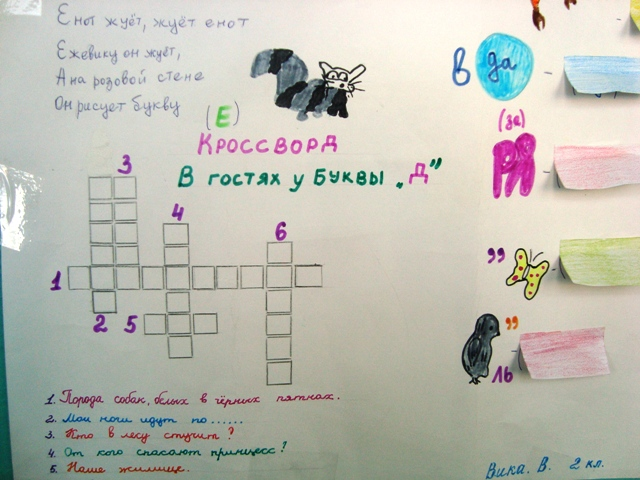 Енот жуёт, жуёт енот
Ежевику он жуёт,
А на розовой стене
Он рисует букву
(Е)
Кроссворд
В гостях у буквы „Д"
3
4
6
1
2
5
1. Порода собак, белых в чёрных пятнах.
2. Мои ноги идут по......
3. Кто в лесу стучит?
4. От кого спасают принцесс?
5. Наше жилище.
В да -
(за)
РЯ
„
„
16 -
Вика. В. 2 кл.